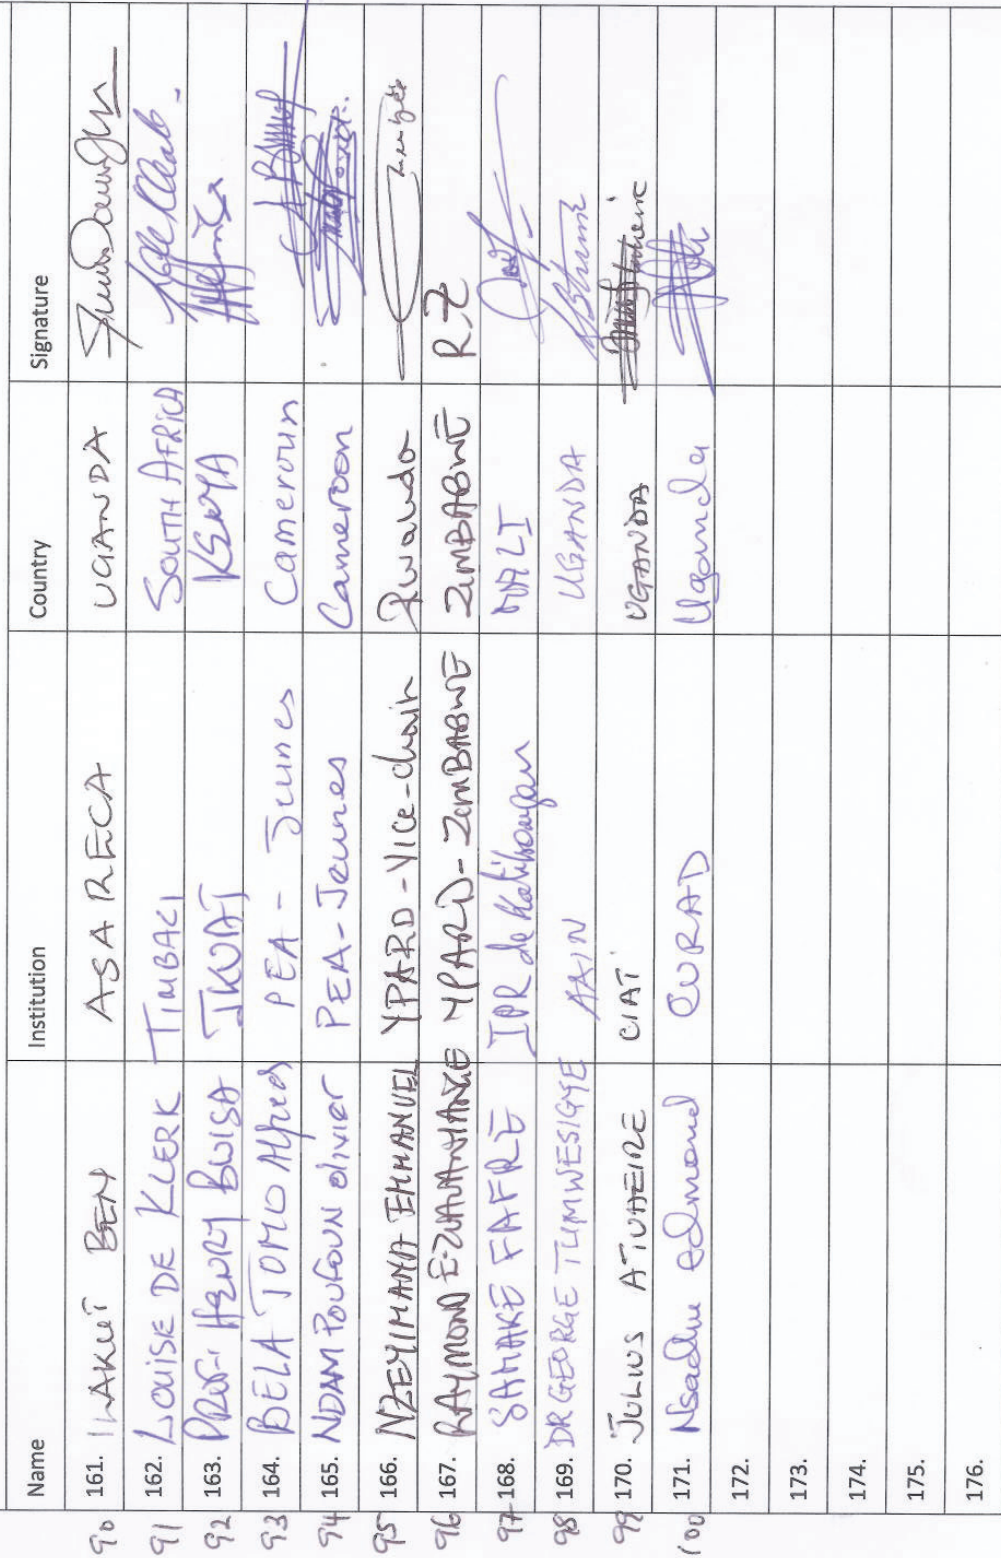 Name Institution Country Signature
90 161. ILAKUT BEN ASARECA UGANDA
91 162. LOUISE DE KLERK TIMBALI SOUTH AFRICA
92 163. PROF. HENRY BWISA JKUAT KENYA
93 164. BELA TOMO Alfred PEA - Jeunes Cameroun
94 165. NDAM POUFOUN olivier PEA-Jeunes Cameroon
95 166. NZEYIMANA EMMANUEL YPARD-Vice-chair Rwanda
96 167. RAYMOND E. ZVAVANYANGE YPARD-ZIMBABWE ZIMBABWE R.Z
97 168. SAMAKE FAFRE IPR de Katibougou MALI
98 169. DR GEORGE TUMWESIGYE AAIN UGANDA
99 170. JULIUS ATUHEIRE CIAT UGANDA
100 171. Nsadhu Edmond CURAD Uganda
172.
173.
174.
175.
176.